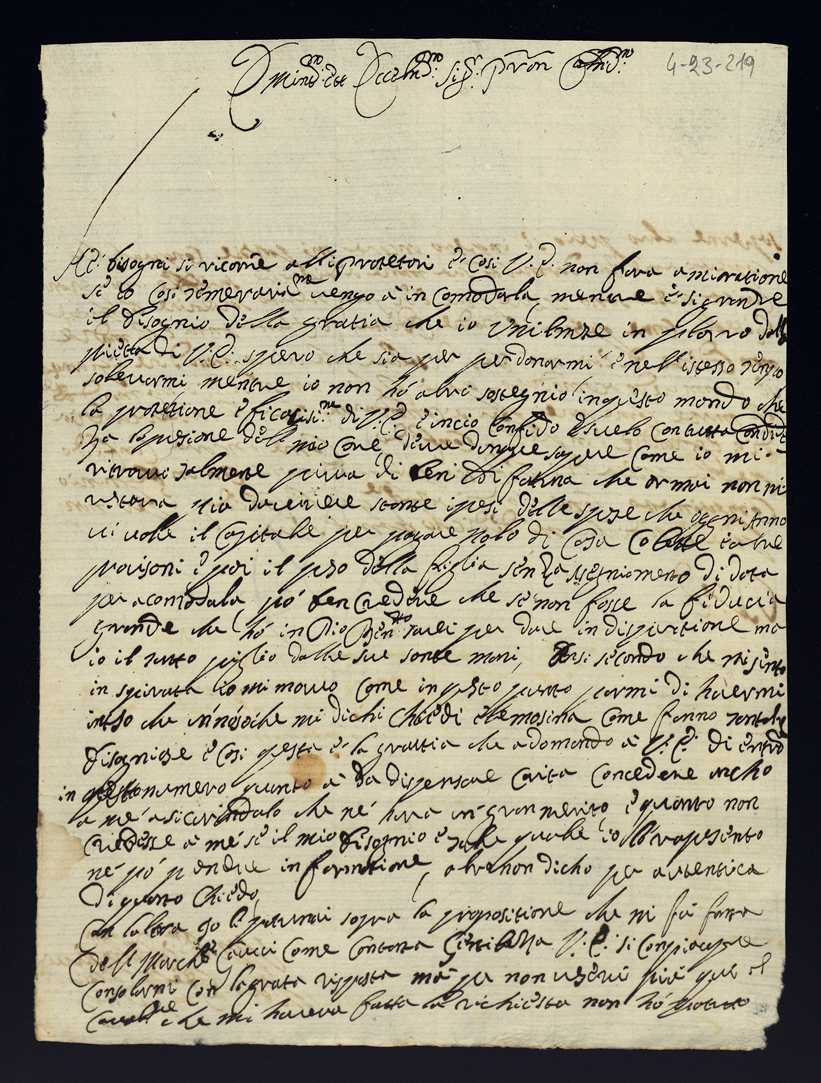 4-23-219
Emin.mo et Eccell.mo Sig.r P̃ron
bisogni si ricorre alli protetori è cosi V. E. non fara amiratione
se io cosi temeraria.me vengo à in comodarla, mentre è si grande
il bisognio della gratia che io
pieta di V. E. spero che sia per perdonarmi è nell'istesso tempo
solevarmi mentre io non hó altro sostegnio in questo mondo che
la protetione eficacisi.ma di V. E. è in cio confido è svelo con tutta
la pasione del mio Core deve donque sapere come io mi
ritrovo talmente priva di beni di fortuna che ormai non mi
restava più da vivere stante i pesi delle spese che ogni Anno
vi vole il Capitale per pagare nolo di Casa
provisoni è poi il peso della figlia senza assegniamento di dota
per acomodala, pó ben credere che se non fosse la fiducia
grande che hó in Dio Ben.to sarei per dare in disperatione ma
io il tutto piglio dalle sue sante mani, Ansi secondo che mi sento
inspirata io mi movo come in questo punto parmi di havermi
inteso che mi dichi chiedi elemosina come fanno tant'altre
bisogniose è cosi questa è la grattia che adomando à V. E. di entrar
in questo numero quanto à da dispensare Carita Concedere ancho
a me asicurandolo che ne hara un gran merito, è quanto non
Credesse à me se il mio bisognio è tale quale io li rapesento
ne pó prendre informatione, altre non dicho per autentica
di quanto Chiedo,
Con laltra go le sopra la propositione che mi fú fatta
dell March.se come contanta Gentilezza V. E. si Conpiacque
Consolarmi con la grata risposta ma per non esservi più qui il
Cavall.re che mi haveva fatta la richiesta non hó potuto